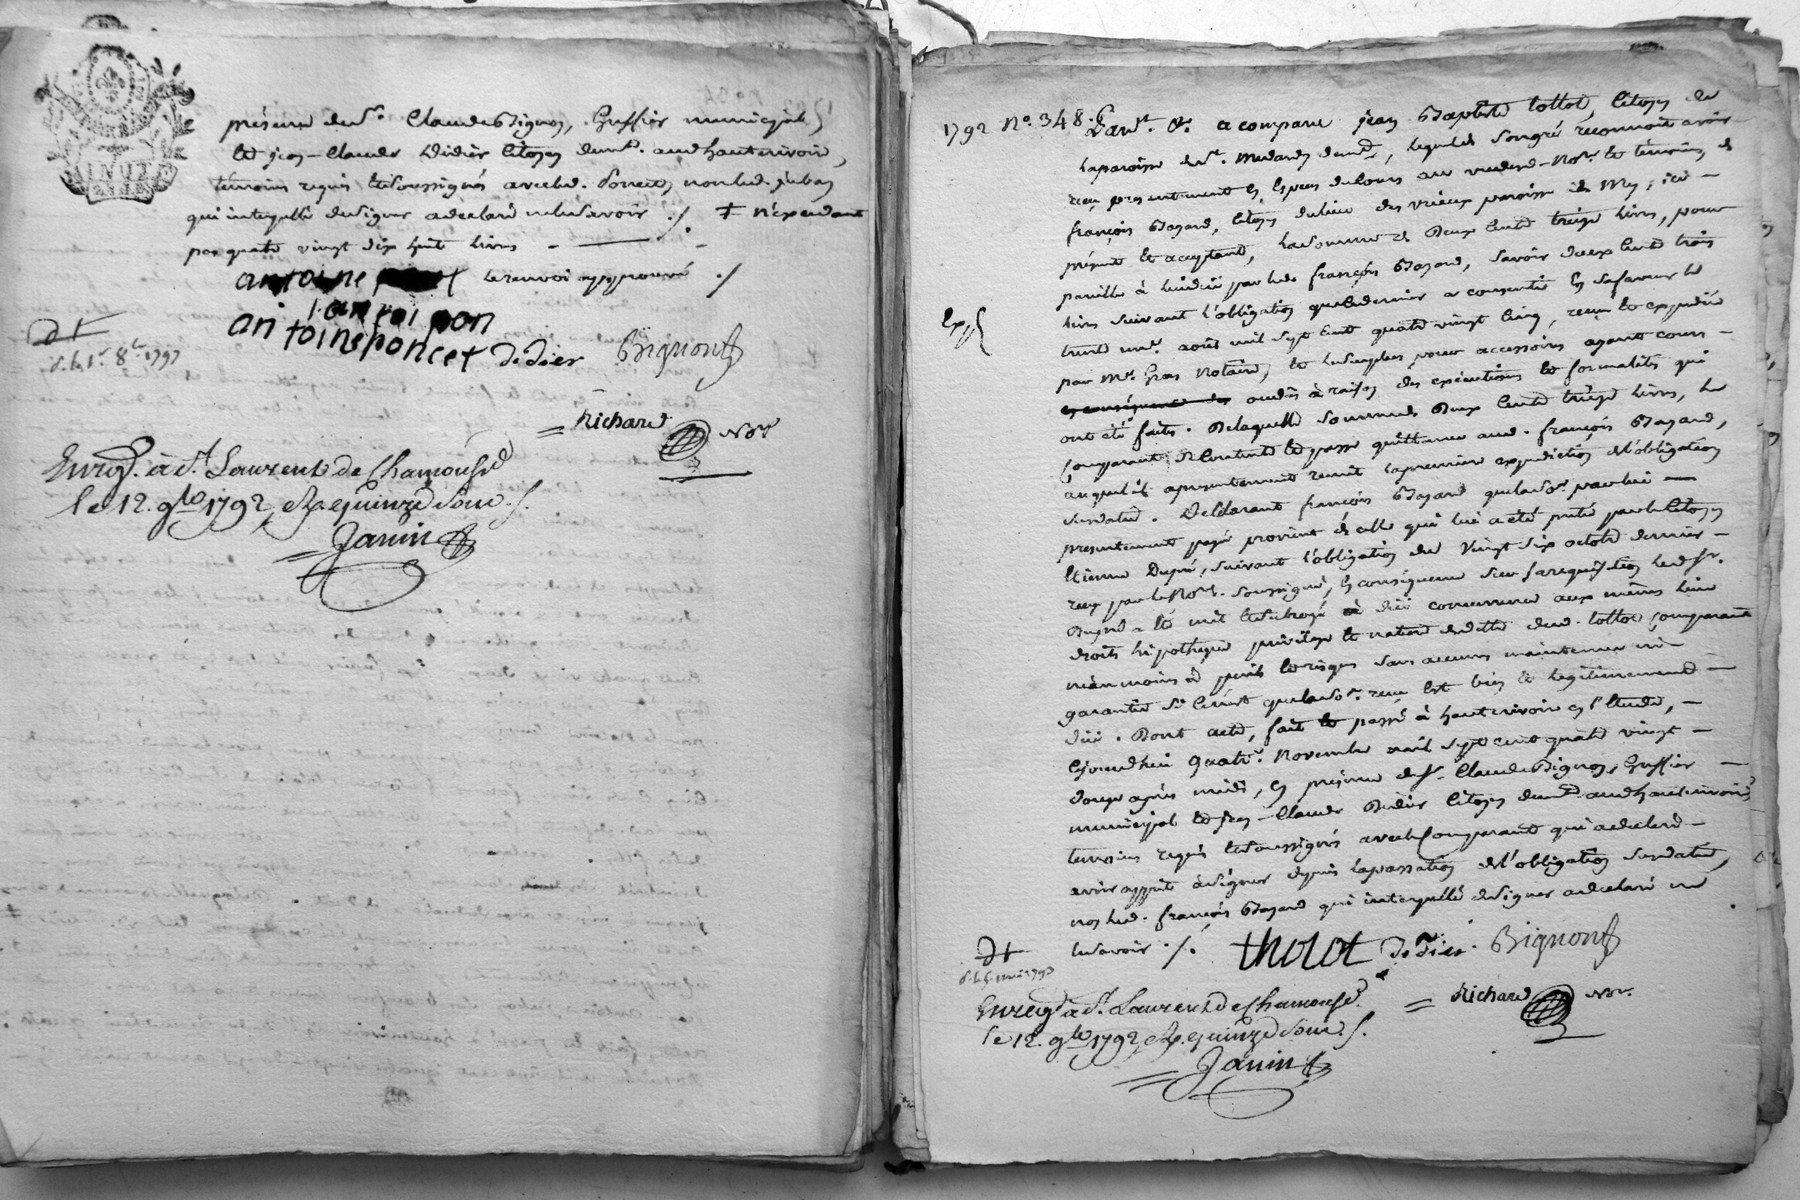 présence de Sr. Claude Bignon, Greffier municipal,
et jean-Claude Didier Citoyen dumd. aud hauterivoire,
témoins requis et soussignés avec led. Poncet, non led. jubay
qui interpellé de signer a déclaré ne le savoir ./. ‡ n'excedant
pas quatre vingt dix huit livres
antoine le renvoi approuvé ./
antoineponcet didier Bignon
d. le 1er. 8bre 1793
Richard Nore
Enregé. à St. Laurent de Chamousset
le 12. 9bre 1792, R. quinze sous ./.
Janin
1792 Nº. 348. Pardt. &. a comparu jean Baptiste tollot, Citoyen de
la paroisse de St. Medard, demt., lequel de son gré reconnoit avoir
reçu presentement en Especes de Cours au vu dud. Nore. et témoins, de
françois Bazard, Citoyen du lieu des vrieux paroisse de Mey, ici
présent et acceptant, la somme de Deux Cents treize livres, pour
pareille à lui düe par led. françois Bazard, savoir deux Cents trois
livres suivant l'obligation que ce dernier a consentie en sa faveur le
trente un. août mil sept Cent quatre vingt Cinq, reçue et expédiée
Exp
par Me. Gras Notaire, et le surplus pour accessoires ayant cours
ou dus à raison des exécutions et formalités qui
ont été faites. De laquelle somme de Deux Cents treize livres, le
Comparant se Contente et passe quittance aud. françois Bazard,
auquel il a présentement remit la premiere expédition de l'obligation
susdatée. Déclarant françois Bazard que la somme par lui
presentement payée provient de celle qui lui a été pretée par le Citoyen
Etienne Dupré, suivant l'obligation du Vingt six octobre dernier
reçu par le Nore. soussigné, En conséquence sur sa requisition led. Sr.
Dupré a été mis et subrogé à düe concurrence aux mêmes lieu
droits hipotheque privilege et nature de dette dud. tollot Comparant
néanmoins à périls et risques sans aucune maintenue ni
garantie si Ce n'est que la somme reçue Est bien et légitimement
düe. Dont acte, fait et passé à hauterivoire en l'Etude,
Cejourd'hui Quatre Novembre mil sept cent quatre vingt
douze après midi, en présence de Sr. Claude Bignon, Greffier
municipal et jean-Claude Didier Citoyen dumd. aud hauterivoire
témoins requis et soussignés avec le Comparant qui a déclaré
avoir appris à signer depuis la passation de l'obligation susdatée,
non led. françois Bazard qui interpellé de signer a déclaré ne
le savoir ./. tholot didier. Bignon
Richard Nore.
Enregé à St. Laurent de Chamousset.
le 12. 9bre 1792, R. quinze sous ./.
Janin